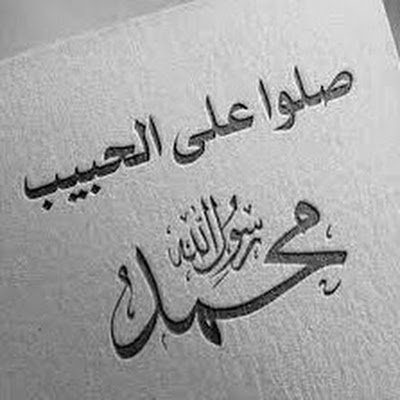 صلوا على الحبيب
محمد
رَسُولُ اللّٰه